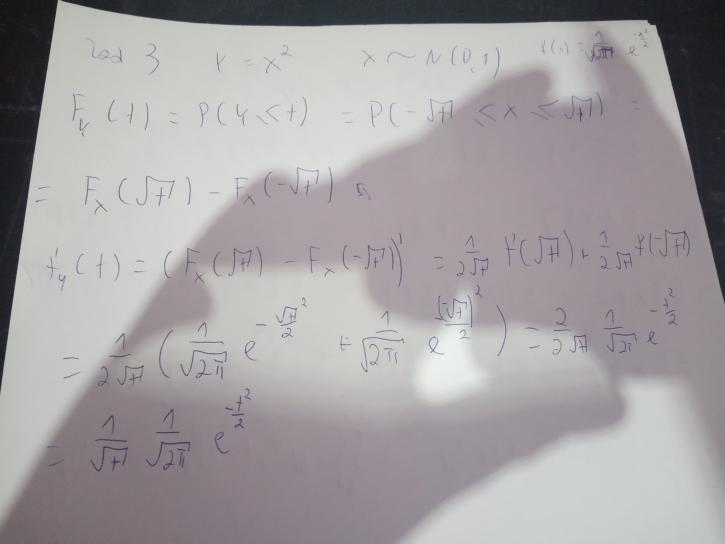 Zad 3 Y = x² X ~ N(0,1) f(x) = 1/√2π e^(-x²/2)
F_Y (t) = P(Y ≤ t) = P(-√t ≤ x ≤ √t) =
= F_x (√t) - F_x (-√t)
f_Y (t) = (F_x (√t) - F_x (-√t))' = 1/2√t f(√t) + 1/2√t f(-√t)
= 1/2√t (1/√2π e^(-√t²/2) + 1/√2π e^((-√t)²/2)) = 2/2√t 1/√2π e^(-t²/2)
= 1/√t 1/√2π e^(-t²/2)